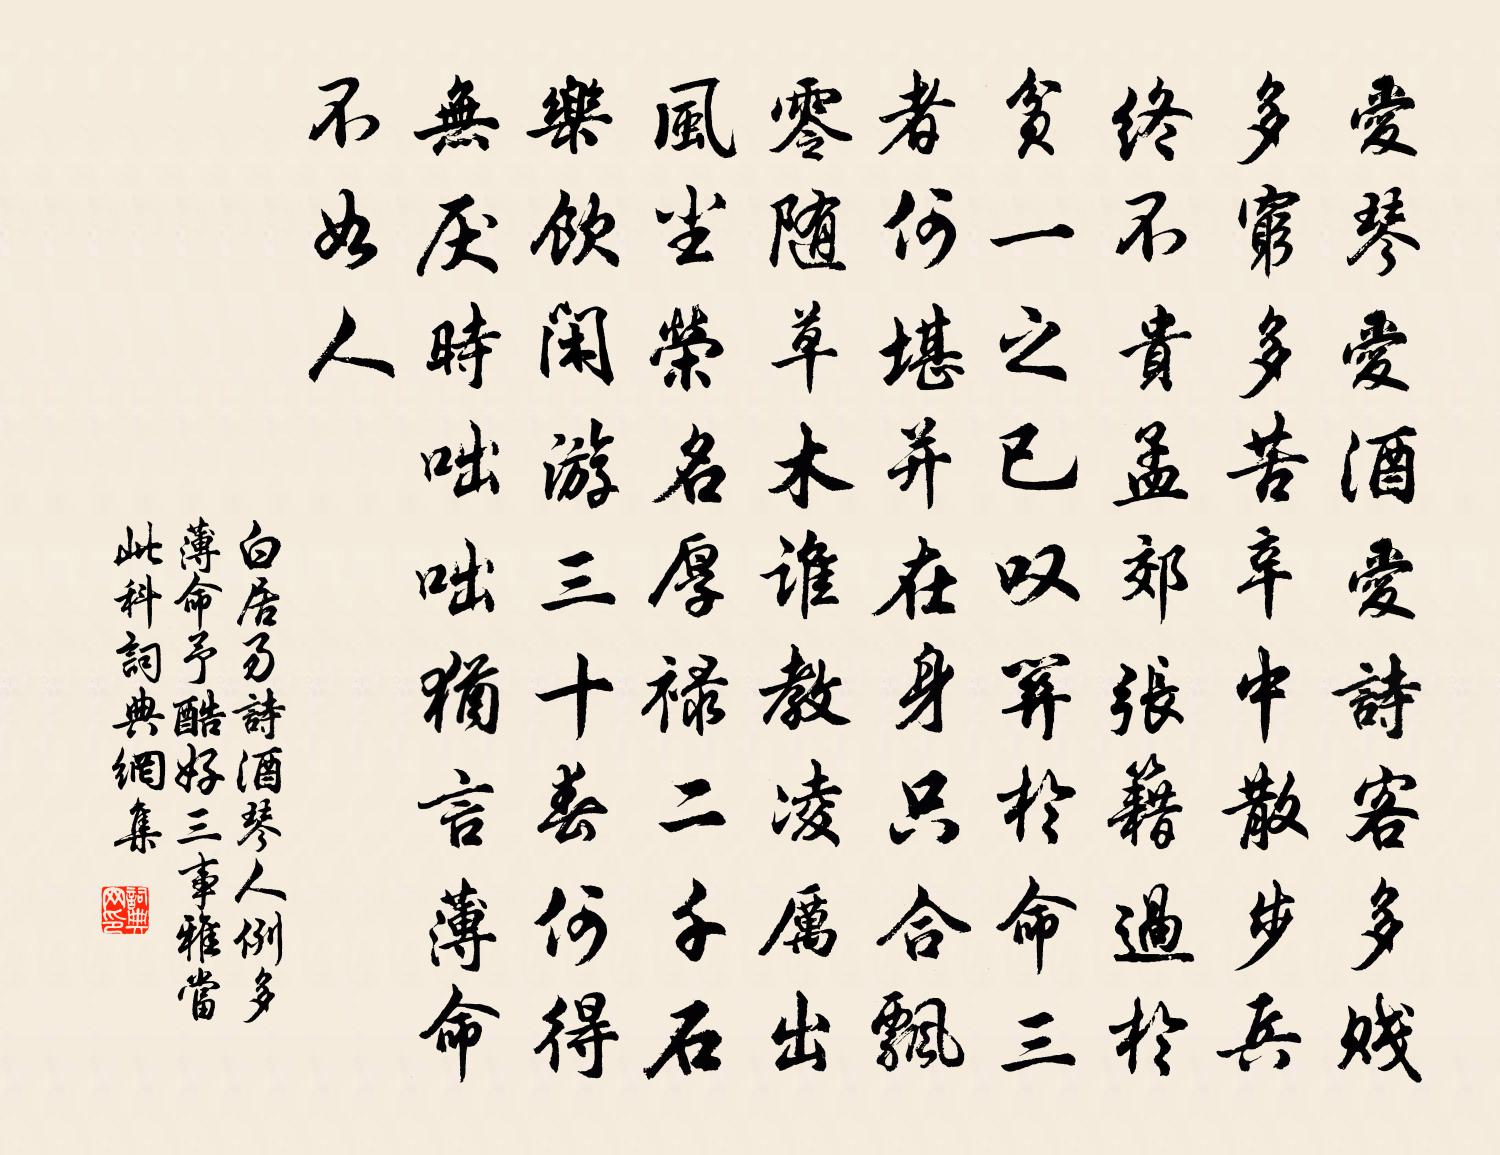 愛琴愛酒愛詩客多賤
多窮多苦辛中散步兵
終不貴孟郊張籍過於
貧一之已叹関於命三
者何堪并在身只合飄
零随草木誰教凌厲出
風尘榮名厚禄二千石
樂飲闲游三十春何得
無厌時咄咄猶言薄命
不如人
白居易詩酒琴人例多
薄命予酷好三事雅當
此科詞典網集
詞典
网印